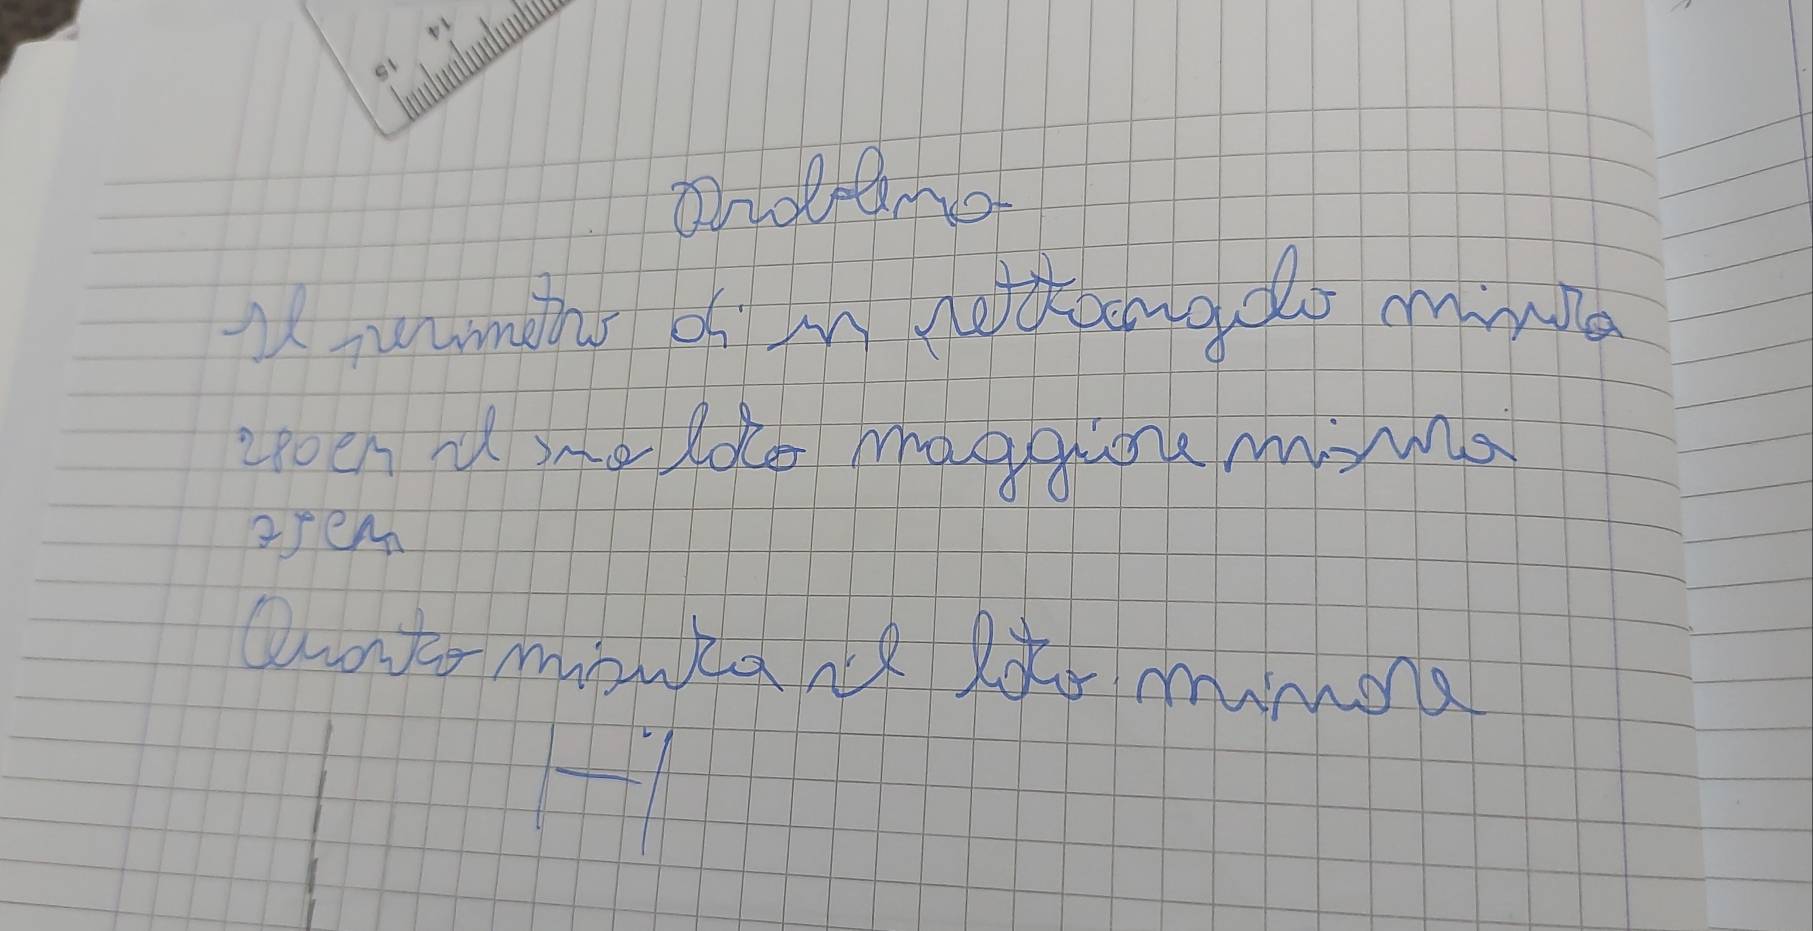 14
15
Problema
Il perimetro di un rettangolo misura
280cm il suo lato maggiore misura
75cm
Quanto misura il lato minore